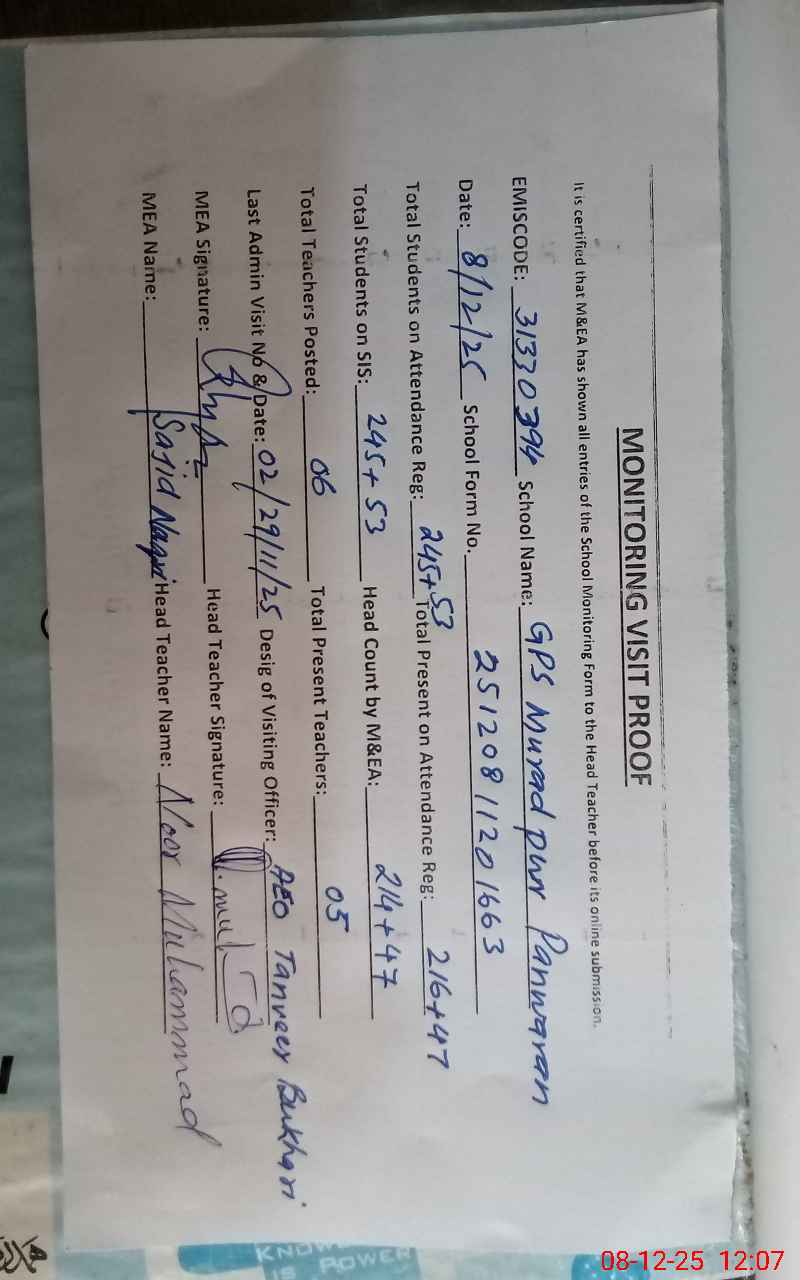 MONITORING VISIT PROOF
It is certified that M&EA has shown all entries of the School Monitoring Form to the Head Teacher before its online submission.
EMISCODE: 31330394 School Name: GPS Murad pur Panwaran
Date: 8/12/25 School Form No. 2512081201663
Total Students on Attendance Reg: 245+53 Total Present on Attendance Reg: 216+47
Total Students on SIS: 245+53 Head Count by M&EA: 214+47
Total Teachers Posted: 06 Total Present Teachers: 05
Last Admin Visit No & Date: 02/29/11/25 Desig of Visiting Officer: AEO Tanveer Bukhari
MEA Signature: Head Teacher Signature:
MEA Name: Sajid Naqvi Head Teacher Name: Noor Muhammad
KNOW
IS POWER
08-12-25 12:07